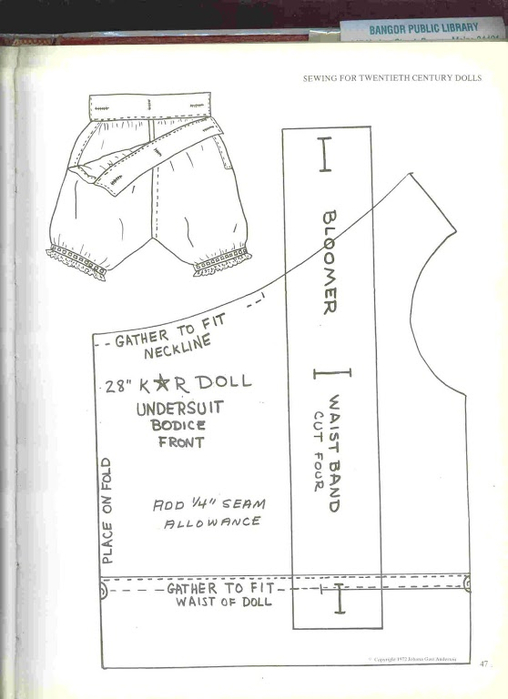 BANGOR PUBLIC LIBRARY
SEWING FOR TWENTIETH CENTURY DOLLS
BLOOMER
WAIST BAND
CUT FOUR
GATHER TO FIT
NECKLINE
28" K★R DOLL
UNDERSUIT
BODICE
FRONT
PLACE ON FOLD
ADD 1/4" SEAM
ALLOWANCE
GATHER TO FIT
WAIST OF DOLL
Copyright 1972 Johana Gast Anderton
47